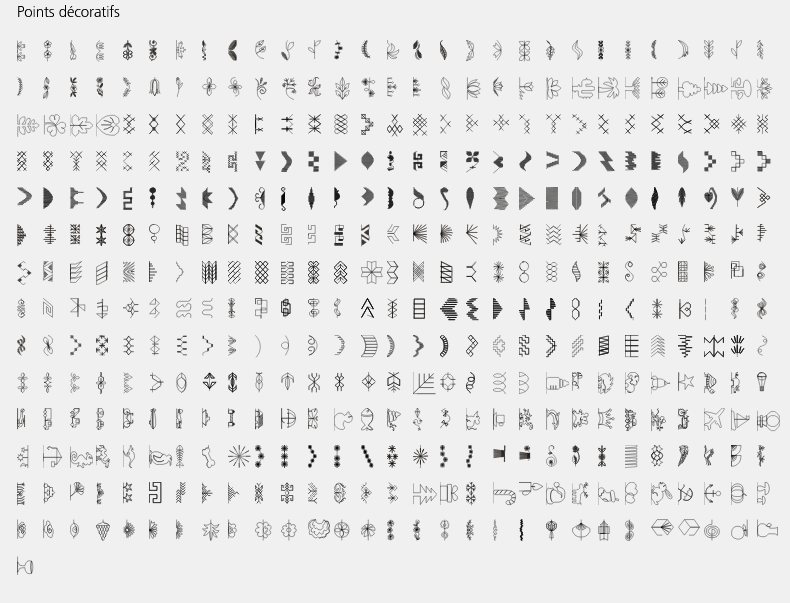 Points décoratifs